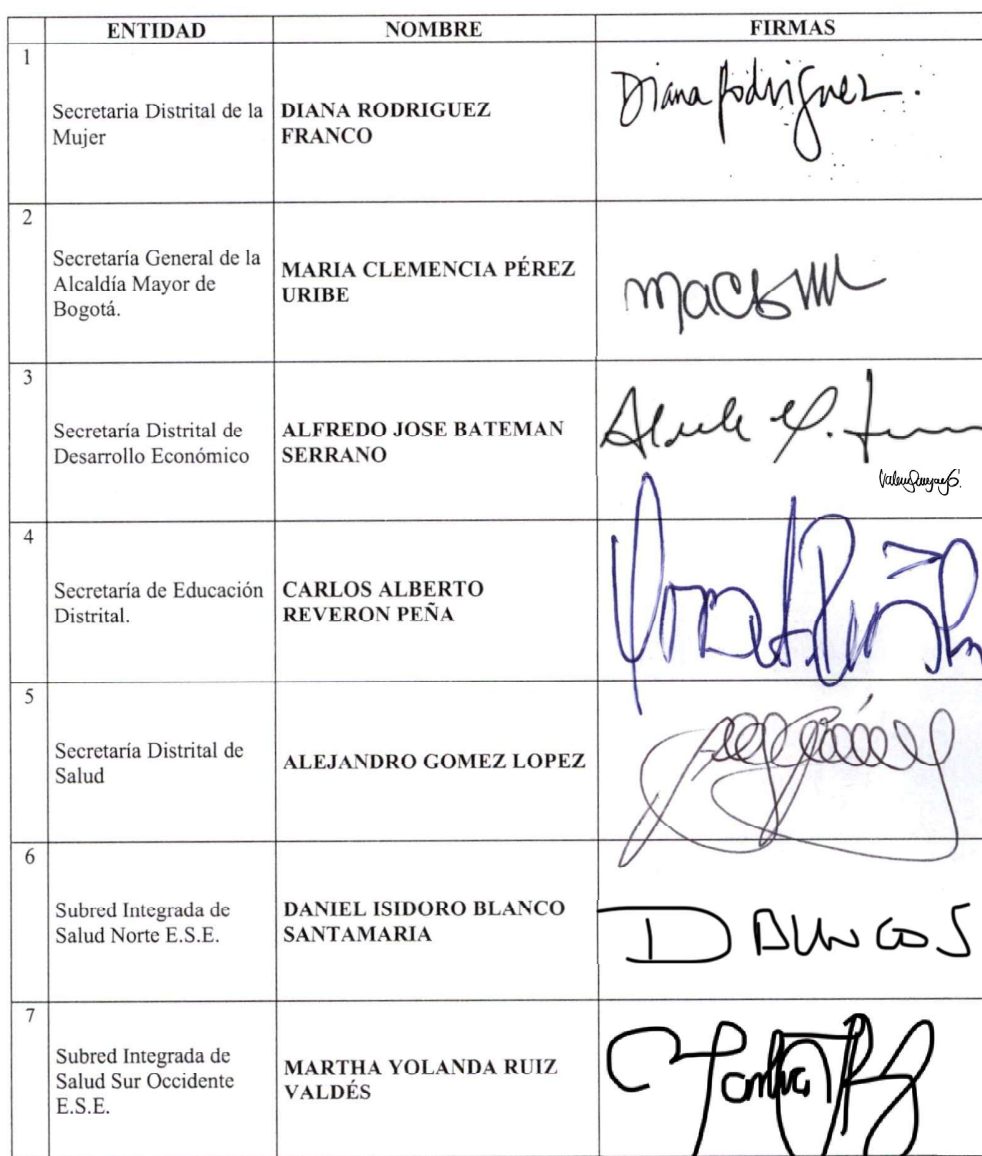 ENTIDAD NOMBRE FIRMAS
1
Secretaria Distrital de la
Mujer
DIANA RODRIGUEZ
FRANCO
Diana Rodriguez.
2
Secretaría General de la
Alcaldía Mayor de
Bogotá.
MARIA CLEMENCIA PÉREZ
URIBE
3
Secretaría Distrital de
Desarrollo Económico
ALFREDO JOSE BATEMAN
SERRANO
4
Secretaría de Educación
Distrital.
CARLOS ALBERTO
REVERON PEÑA
5
Secretaría Distrital de
Salud
ALEJANDRO GOMEZ LOPEZ
6
Subred Integrada de
Salud Norte E.S.E.
DANIEL ISIDORO BLANCO
SANTAMARIA
7
Subred Integrada de
Salud Sur Occidente
E.S.E.
MARTHA YOLANDA RUIZ
VALDÉS